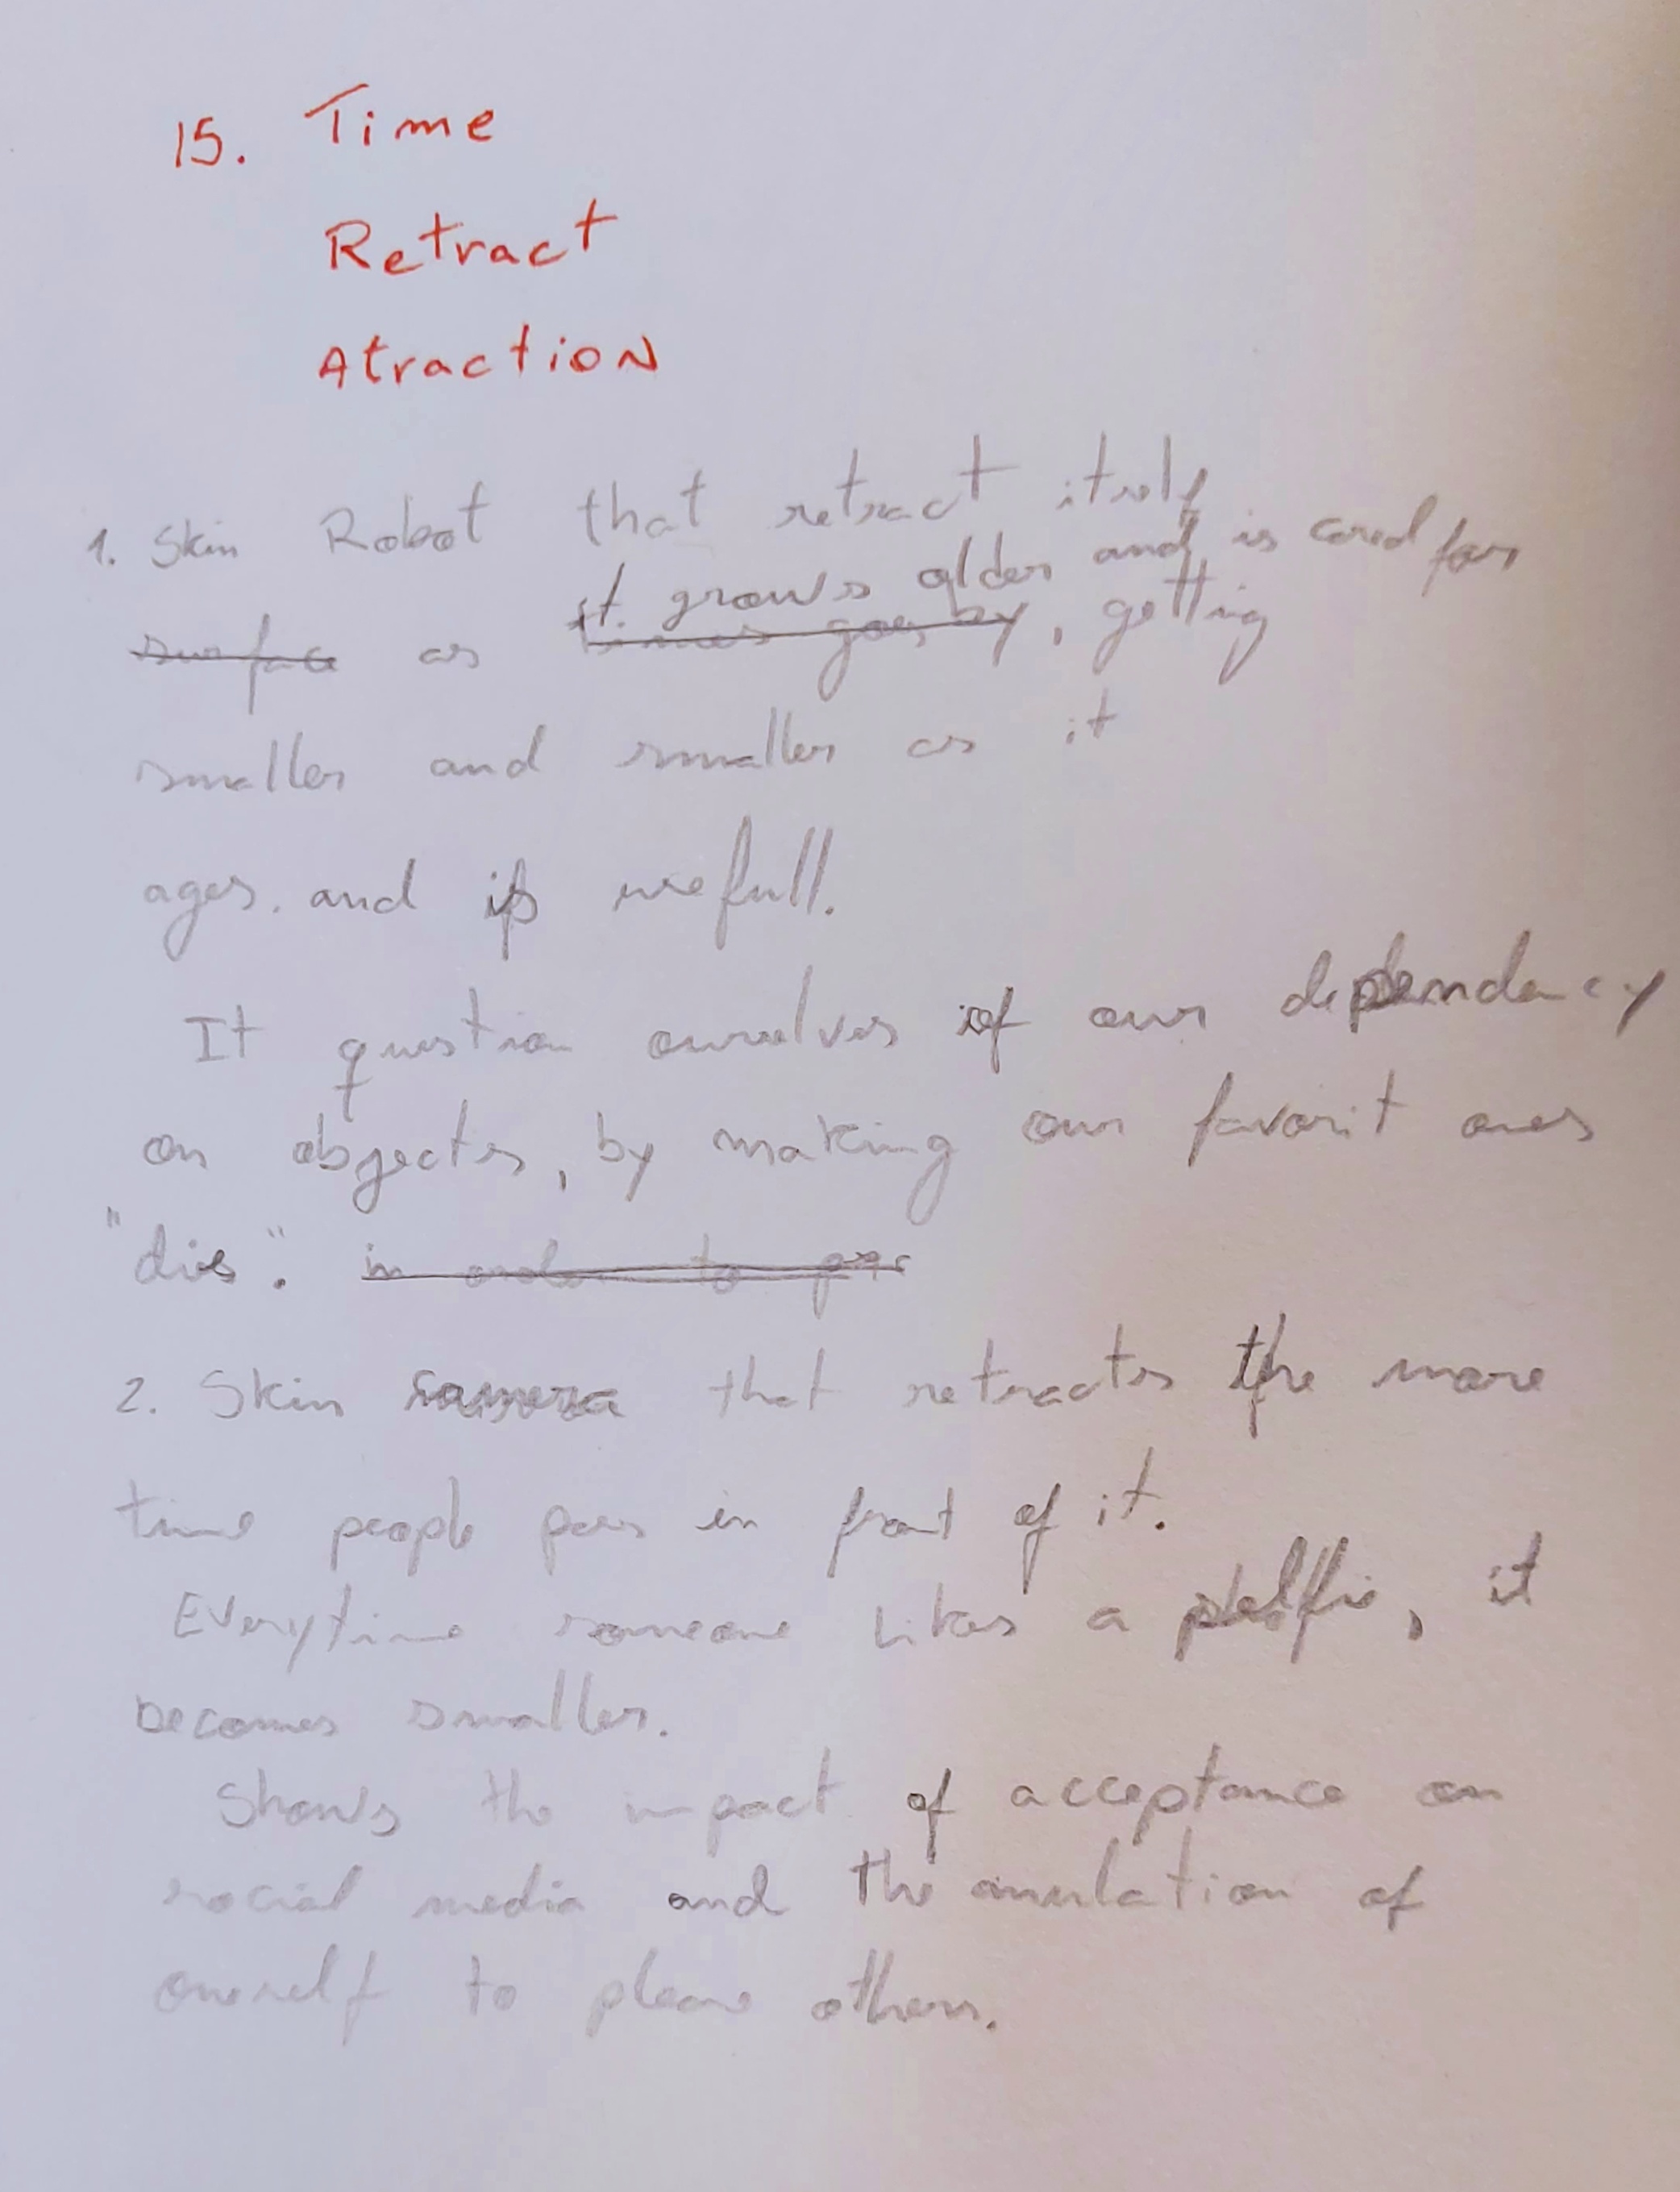 15. Time
Retract
Atraction
1. Skin Robot that retract itself
it grows older and is cared for
surface as times goes by, getting
smaller and smaller as it
ages. and is usefull.
It question ourselves of our dependency
on objects, by making our favorit ones
"die". in order to
2. Skin camera that retracts the more
time people pass in front of it.
Everytime someone likes a selfie, it
becomes smaller.
Shows the impact of acceptance on
social media and the anulation of
oneself to please others.